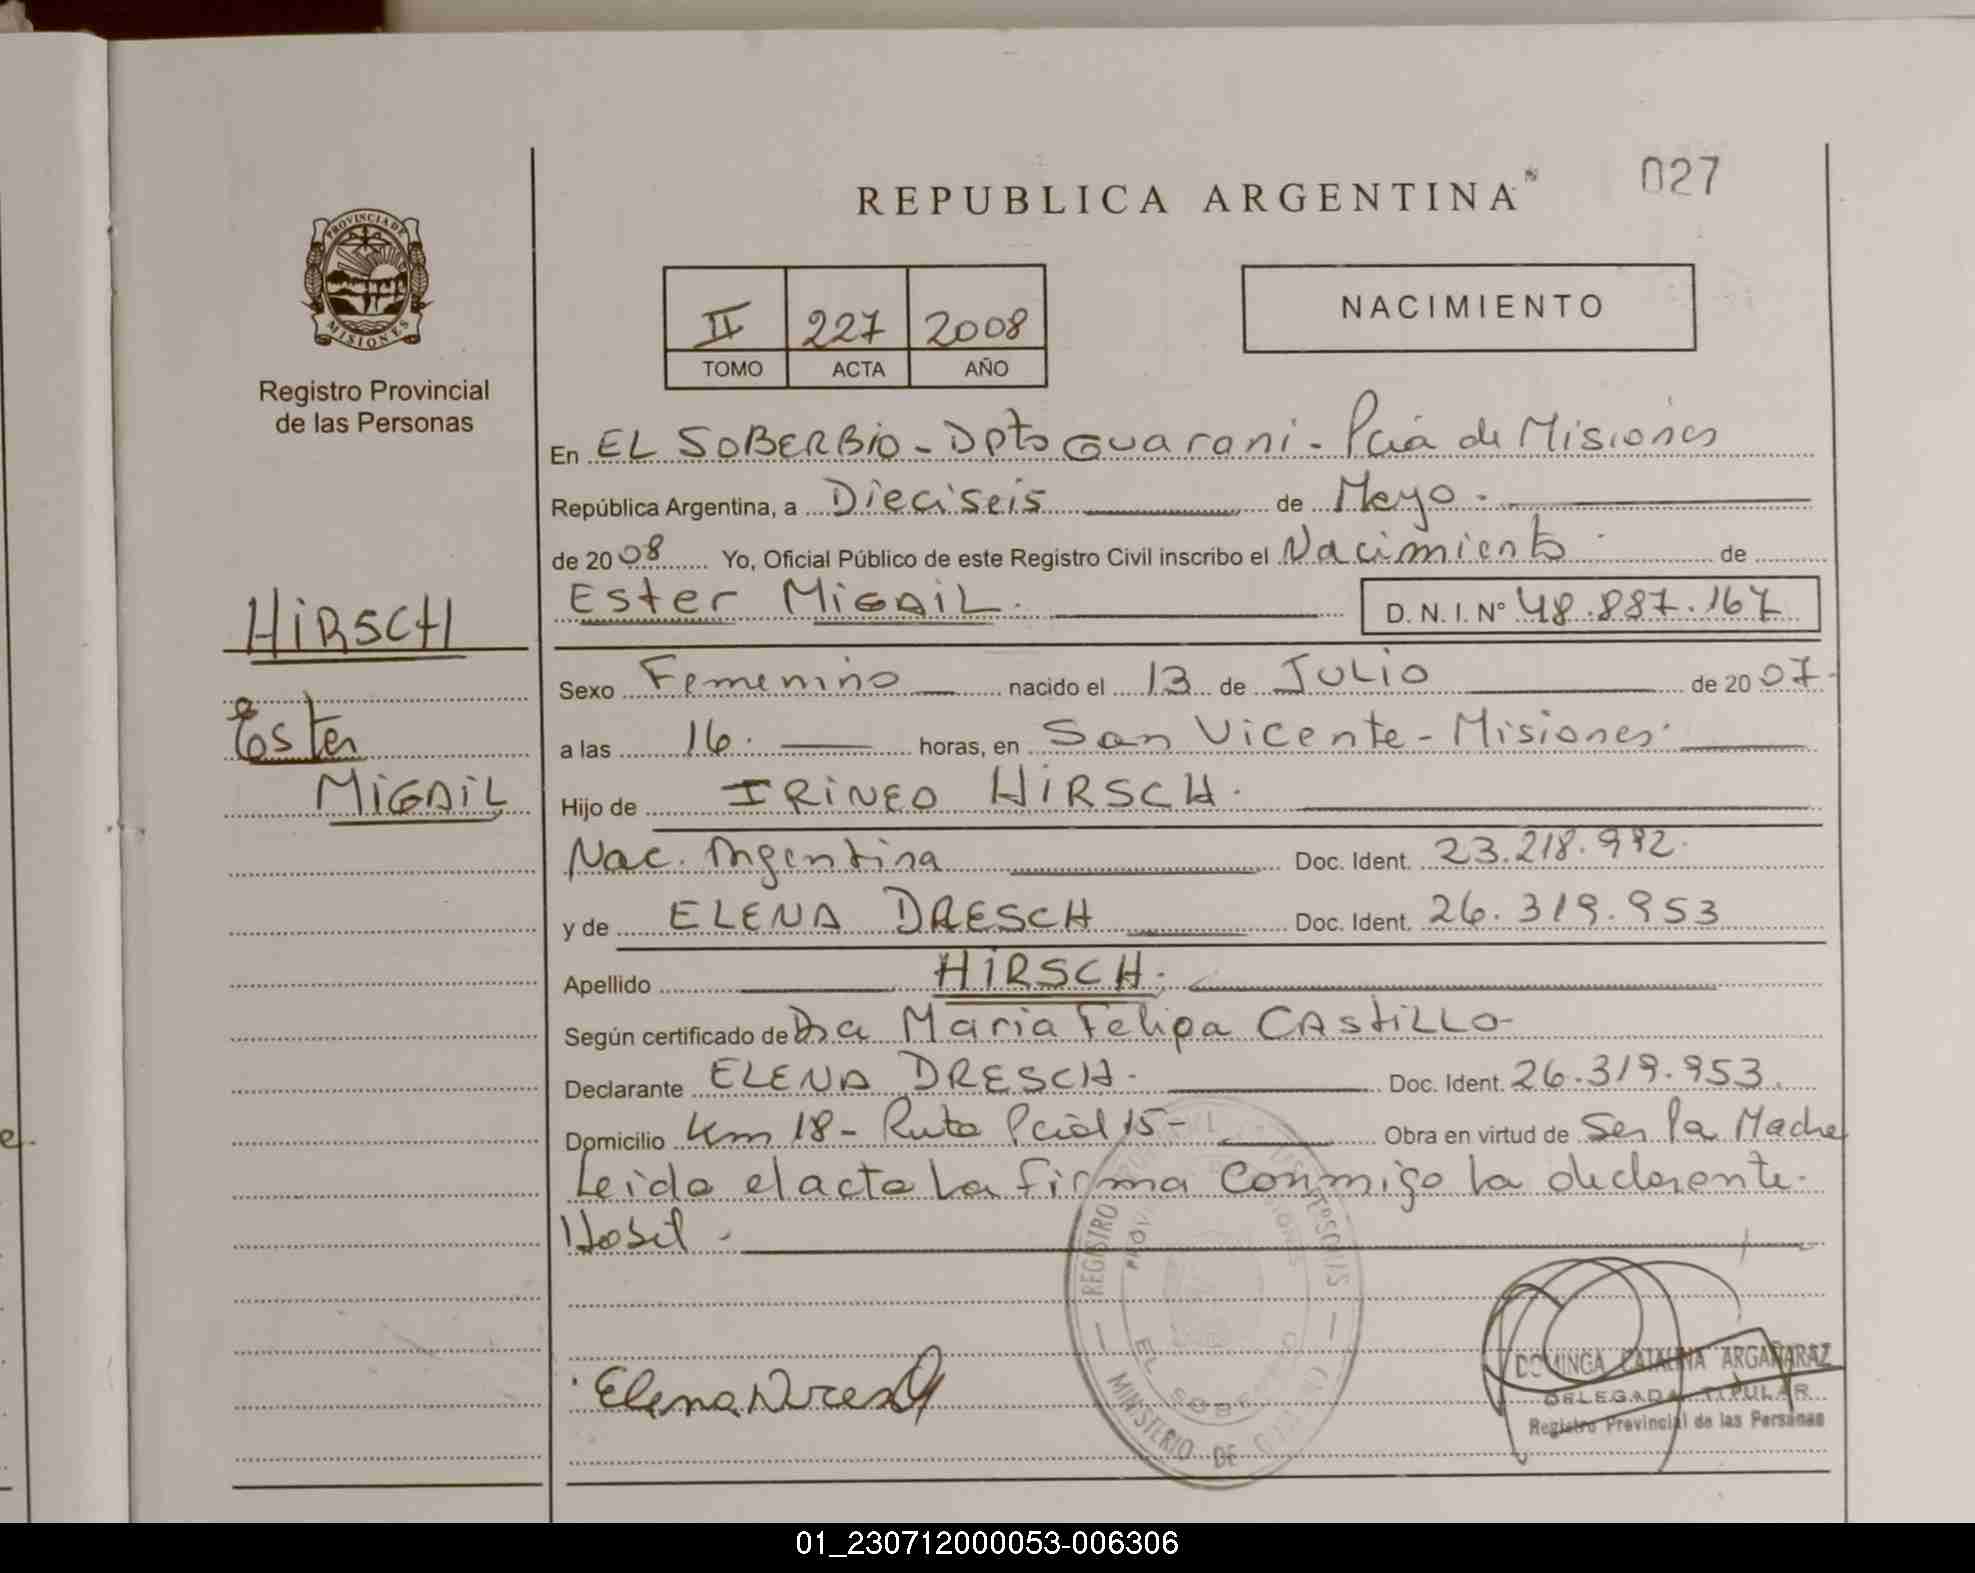 REPUBLICA ARGENTINA
027
PROVINCIA DE
MISIONES
Registro Provincial
de las Personas
II 227 2008
TOMO ACTA AÑO
NACIMIENTO
En EL SOBERBIO - Dpto GUARANI - Pcia de Misiones
República Argentina, a Dieciseis de Mayo.
de 2008 Yo, Oficial Público de este Registro Civil inscribo el Nacimiento de
Ester MIGAIL. D. N. I. N° 48.887.167
HIRSCH
Ester
MIGAIL
Sexo Femenino nacido el 13 de JULIO de 2007-
a las 16. horas, en San Vicente - Misiones.
Hijo de IRINEO HIRSCH.
Nac. Argentina Doc. Ident. 23.218.992.
y de ELENA DRESCH Doc. Ident. 26.319.953
Apellido HIRSCH.
Según certificado de Dra Maria Felipa CASTILLO-
Declarante ELENA DRESCH. Doc. Ident. 26.319.953.
Domicilio Km 18 - Ruta Pcial 15- Obra en virtud de Ser la Madre
Leida el acta La firma Conmigo la declarante.
Elena Dresch
REGISTRO
EL SOBERBIO
MINISTERIO DE
DOMINGA CATALINA ARGAÑARAZ
DELEGADA TITULAR
Registro Provincial de las Personas
01_230712000053-006306